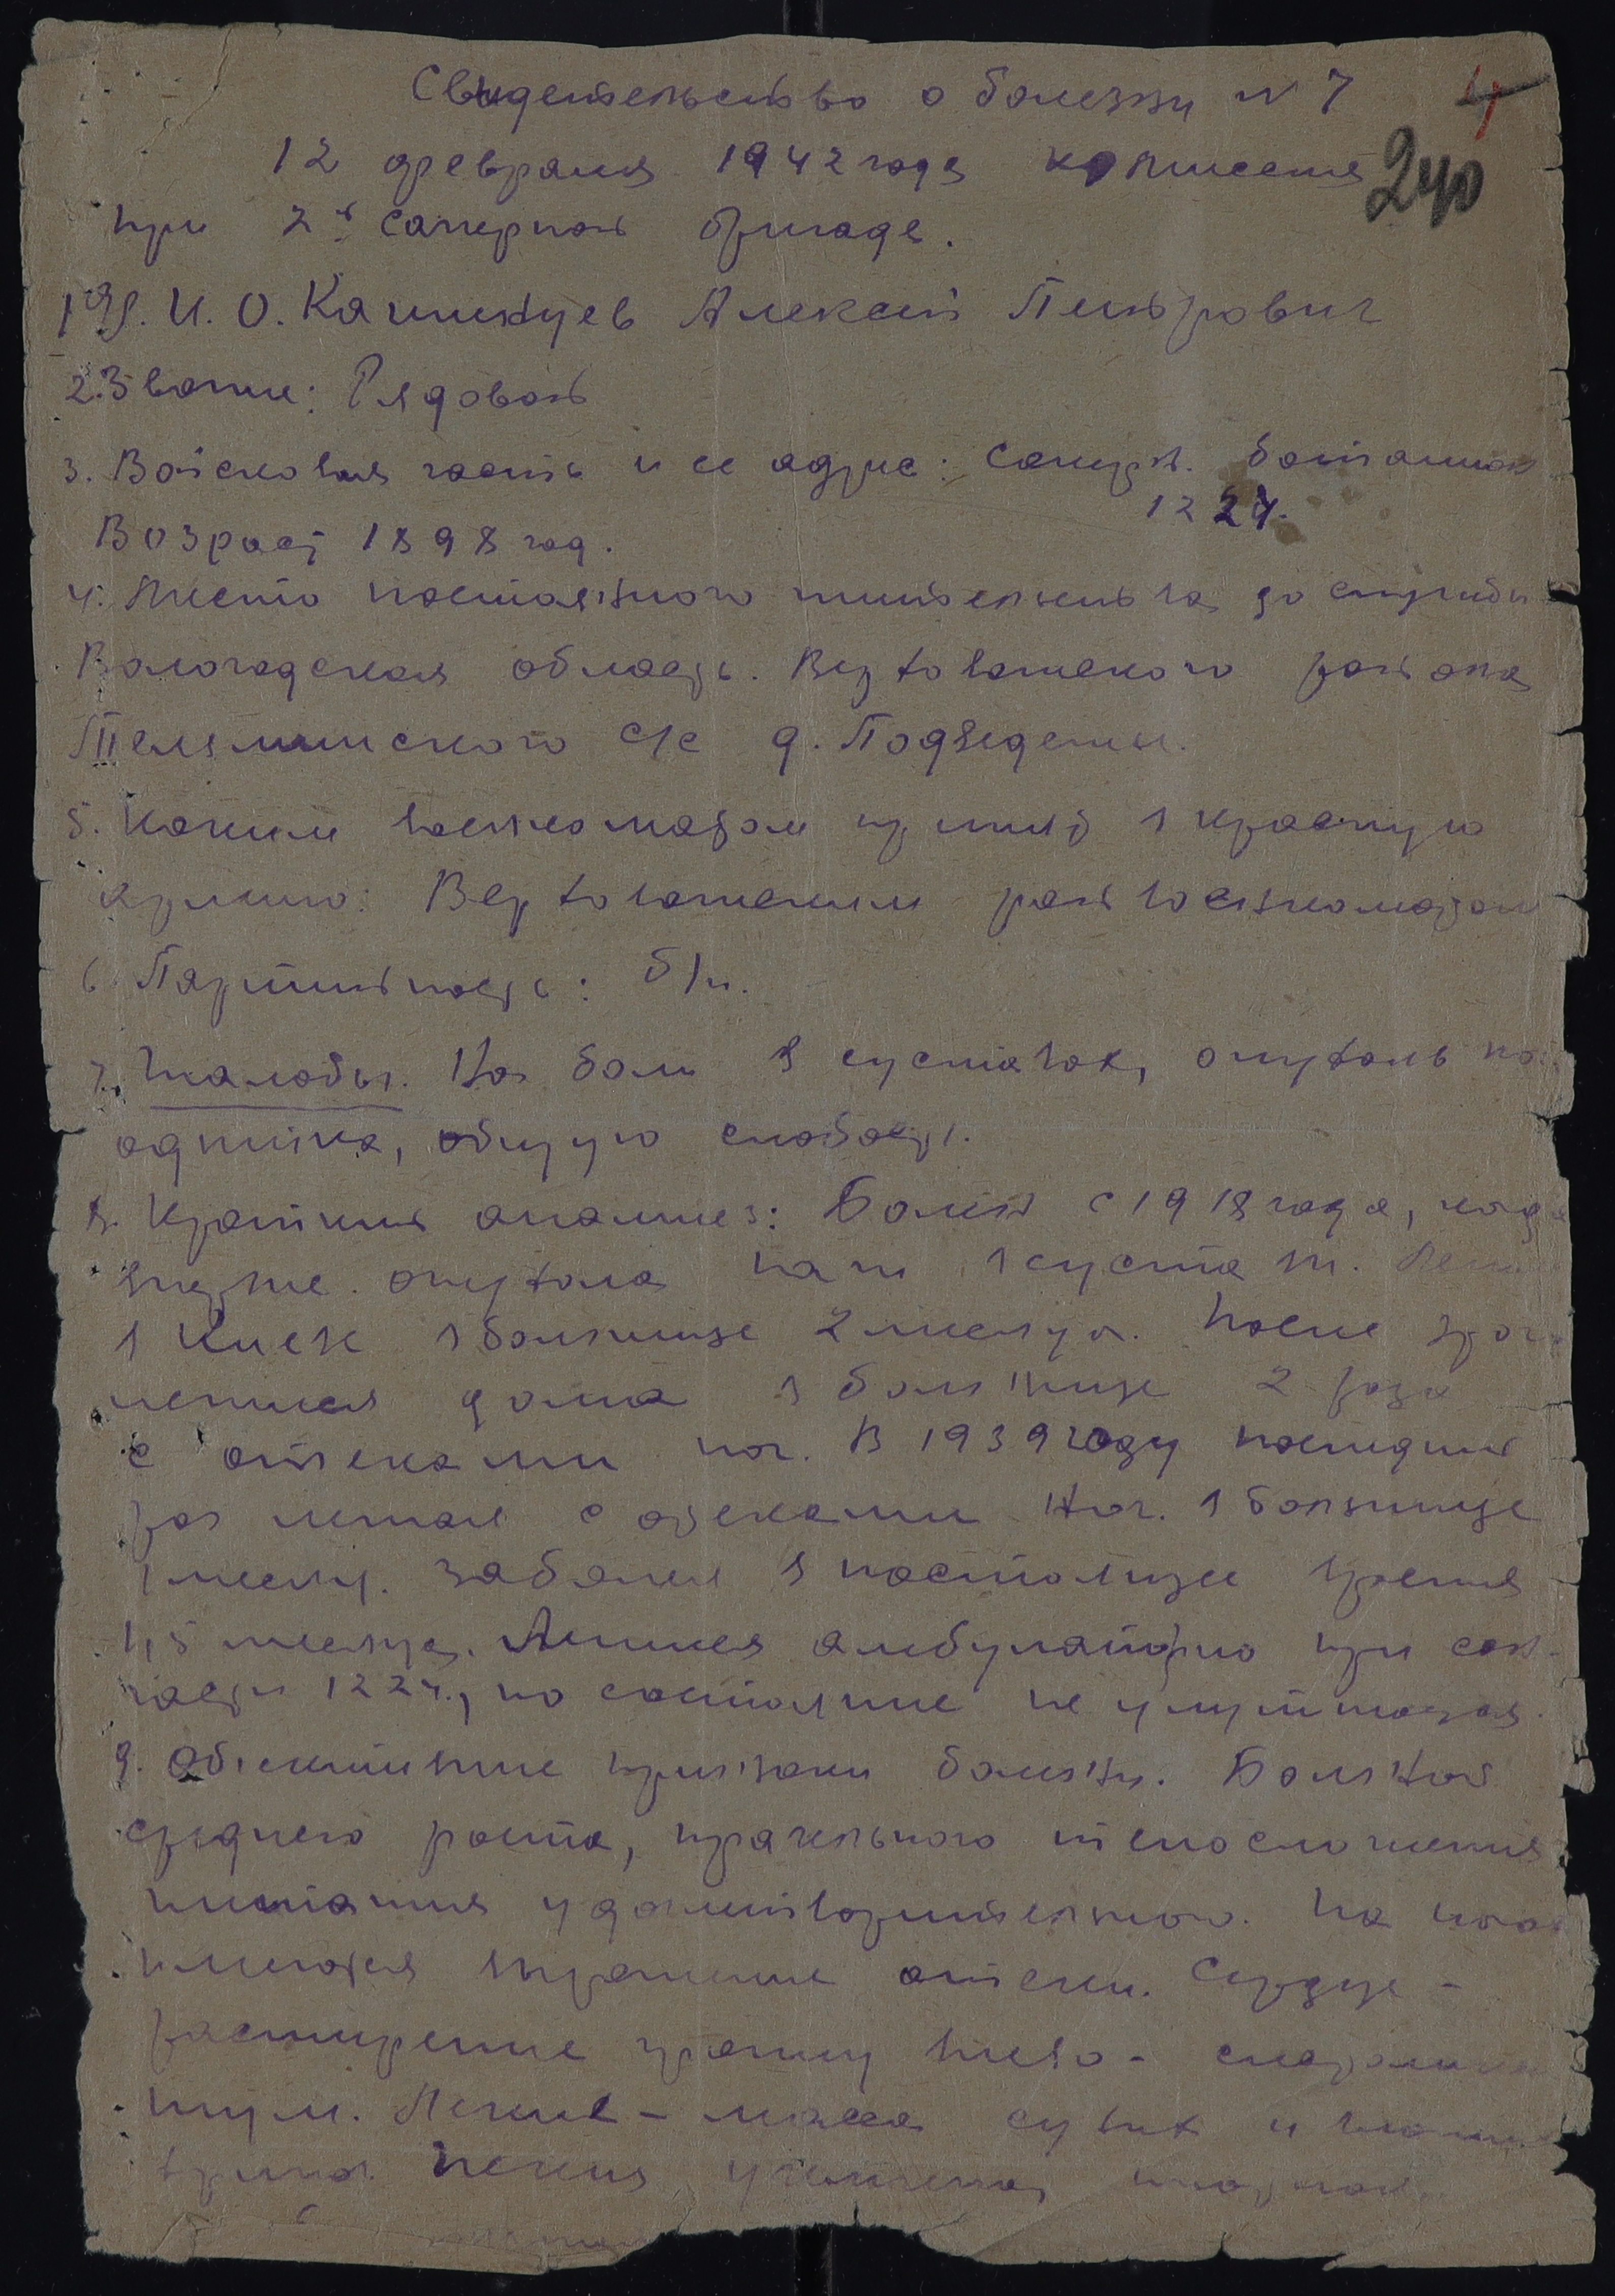 Свидетельство о болезни N 7
4
240
12 февраля 1942 года комиссия
при 2й саперной бригаде.
1 Ф. И. О. Алексей Петрович
2. Звание: Рядовой
3. Войсковая часть и ее адрес: саперн. баталион
1224.
Возраст 1898 год.
4. Место постоянного жительства до службы
Вологодская область. района
с/с д.
5. Каким военкоматом призван в красную
армию: райвоенкоматом
6 Партийность: б/п.
7. Жалобы. На боли в суставах, опухоль ног
одышка, общую слабость.
8. Краткий анамнез: Болен с 1918 года, когда
впервые опухала нога в суставах.
в Киеве в больнице 2 месяца. После
лечился дома в больнице 2 раза
с отеками ног. В 1939 году последний
раз лежал с отеками ног. в больнице
1 месяц. заболел в настоящее время
1,5 месяца. Лечился амбулаторно при сан
части 1224., но состояние не улучшается.
9. Объективные признаки болезни. Больной
среднего роста, правильного телосложения
питания удовлетворительного. На ногах
имеются отеки. Сердце -
расширение границ влево -
шум. Легкие - масса сухих и влажных
хрипов. Печень увеличена